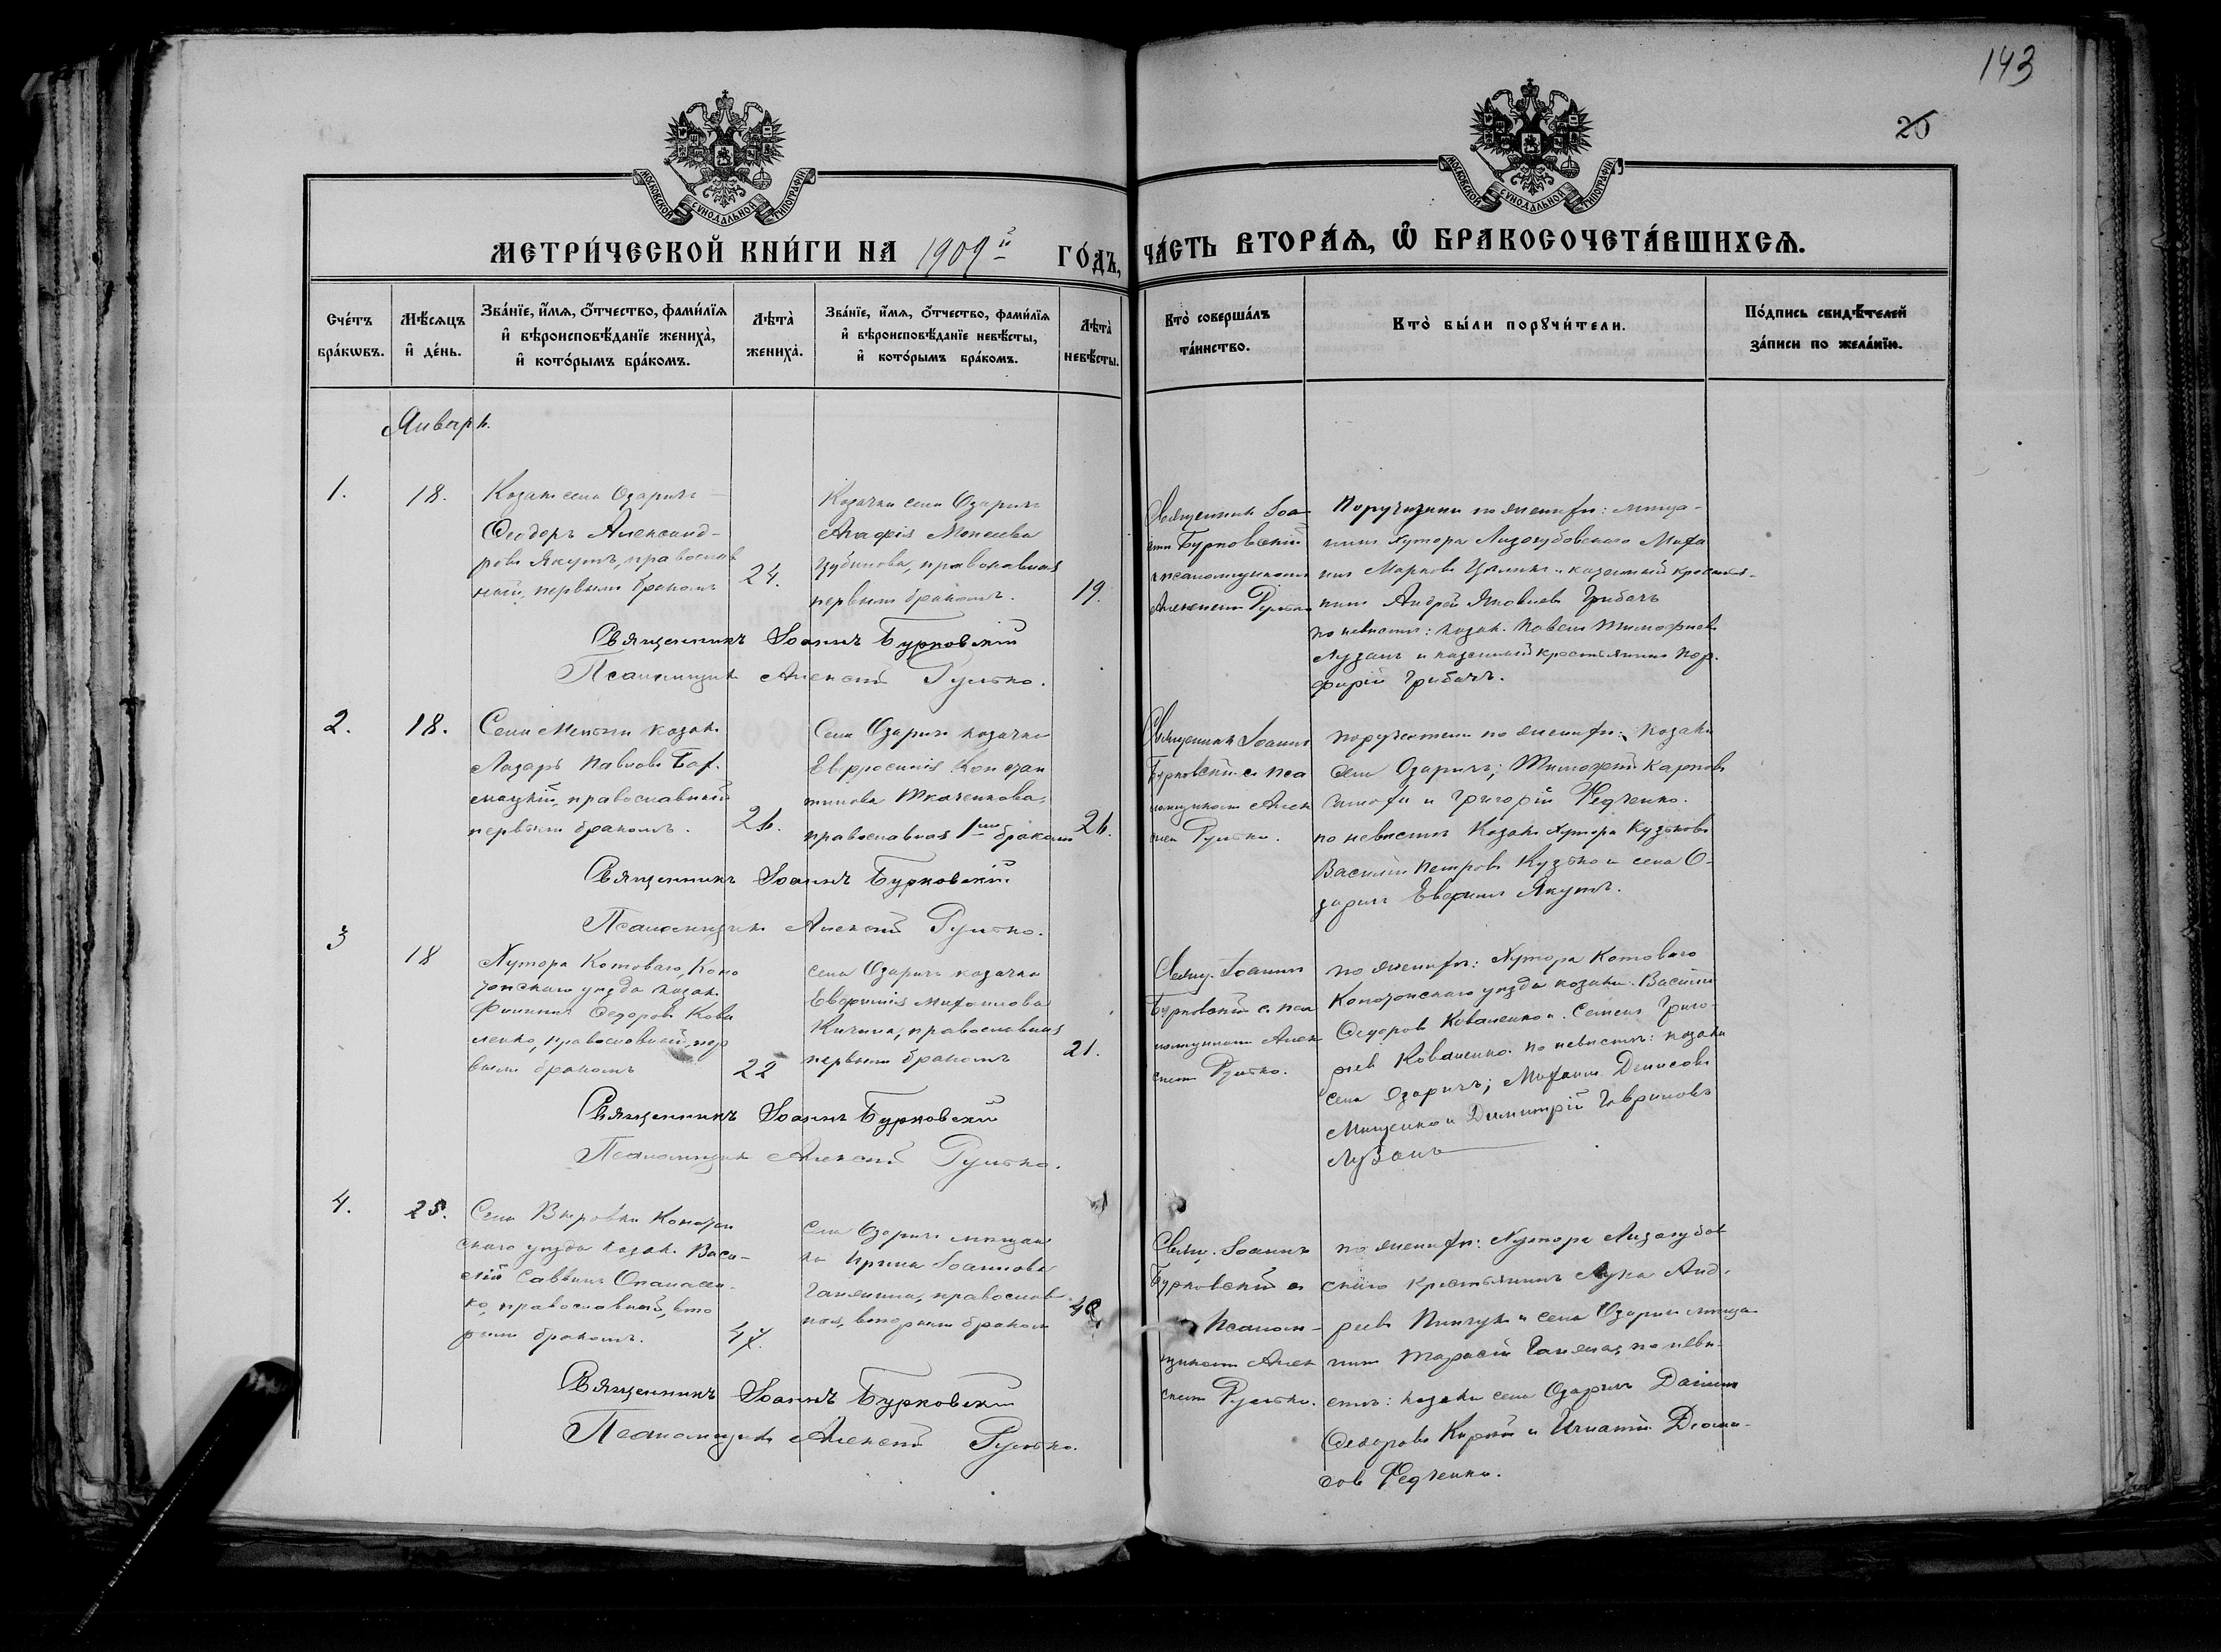 143
25
МОСКОВСКОЙ СѴНОДАЛЬНОЙ ТИПОГРАФІИ
МОСКОВСКОЙ СѴНОДАЛЬНОЙ ТИПОГРАФІИ
МЕТРИ́ЧЕСКОЙ КНИ́ГИ НА 1909й ГО́ДЪ, ЧА́СТЬ ВТОРА́Ѧ, Ѽ БРАКОСОЧЕТА́ВШИХСѦ.
Сче́тъ бра́кѡвъ.
Мѣ́сяцъ и҆ де́нь.
Зва́нїе, и҆́мѧ, ѻ҆́тчество, фами́лїѧ
и҆ вѣроисповѣ́данїе жениха̀,
и҆ кото́рымъ бра́комъ.
Лѣта̀ жениха̀.
Зва́нїе, и҆́мѧ, ѻ҆́тчество, фами́лїѧ
и҆ вѣроисповѣ́данїе невѣ́сты,
и҆ кото́рымъ бра́комъ.
Лѣта̀ невѣ́сты.
Кто̀ соверша́лъ та́инство.
Кто̀ бы́ли порꙋчи́тели.
По́дпись свидѣ́телей
за́писи по жела́нїю.
Январь.
1.
18.
Козакъ села Озаричъ
Ѳеодоръ Александ-
ровъ Якутъ, православ
ный, первымъ бракомъ
24.
Козачка села Озаричъ
Агафія Моисеева
православная
первымъ бракомъ.
19.
Священникъ Іоа
ннъ Бурковскій
съ псаломщикомъ
Алексіемъ Рулько
Поручители по женихѣ: мѣща-
нинъ хутора Лизогубовскаго Миха
илъ Марковъ и казенный крестья-
нинъ Андрей Яковлевъ Грибачъ
по невѣстѣ: козакъ Павелъ Тимофіевъ
Лузанъ и казенный крестьянинъ Пор-
фирій Грибачъ.
Священникъ Іоаннъ Бурковскій
Псаломщикъ Алексій Рулько.
2.
18.
Села козакъ
Лазарь Павловъ
православный
первымъ бракомъ.
26.
Села Озаричъ козачка
Евфросинія Констан
тинова Ткаченкова,
православная 1мъ бракомъ
26.
Священникъ Іоаннъ
Бурковскій съ пса
ломщикомъ Алек
сіем Рулько.
поручители по женихѣ: козаки
села Озаричъ; Тимофей Карповъ
и Григорій Федченко.
по невѣстѣ козакъ хутора Кузьковъ
Василій Петровъ Кузько и села О-
заричъ Евфимъ Якутъ.
Священникъ Іоаннъ Бурковскій
Псаломщикъ Алексій Рулько.
3
18
Хутора Котоваго, Коно
топскаго уѣзда козакъ
Филиппъ Ѳедоровъ Кова
ленко, православный, пер
вымъ бракомъ
22
села Озаричъ козачка
Евфимія Михаилова
православная
первымъ бракомъ
21.
Свящ. Іоаннъ
Бурковскій съ пса
ломщикомъ Алек
сіемъ Рулько.
по женихѣ: хутора Котоваго
Конотопскаго уѣзда козаки: Василій
Ѳедоровъ Коваленко и Семенъ Григо-
ріев Коваленко. по невѣстѣ: козаки
села Озаричъ; Михаилъ Денисовъ
Мищенко и Димитрій Гавриловъ
Лузанъ
Священникъ Іоаннъ Бурковскій
Псаломщикъ Алексій Рулько.
4.
25.
Села Вировки Конотоп
скаго уѣзда козакъ Васи-
лій Саввинъ Опанасен-
ко, православный, вто
рымъ бракомъ.
47.
Села Озаричъ мѣщан
ка Ирина Іоаннова
православ
ная, вторымъ бракомъ
Свящ. Іоаннъ
Бурковскій съ
Псалом-
щикомъ Алек
сіемъ Рулько.
по женихѣ: Хутора Лизогубов
скаго крестьянинъ Лука Анд-
реевъ Пинчукъ и села Озаричъ мѣща
нинъ Тарасій по невѣ-
стѣ: козаки села Озаричъ Даніилъ
Ѳедоровъ и Игнатій
Федченко.
Священникъ Іоаннъ Бурковскій
Псаломщикъ Алексій Рулько.